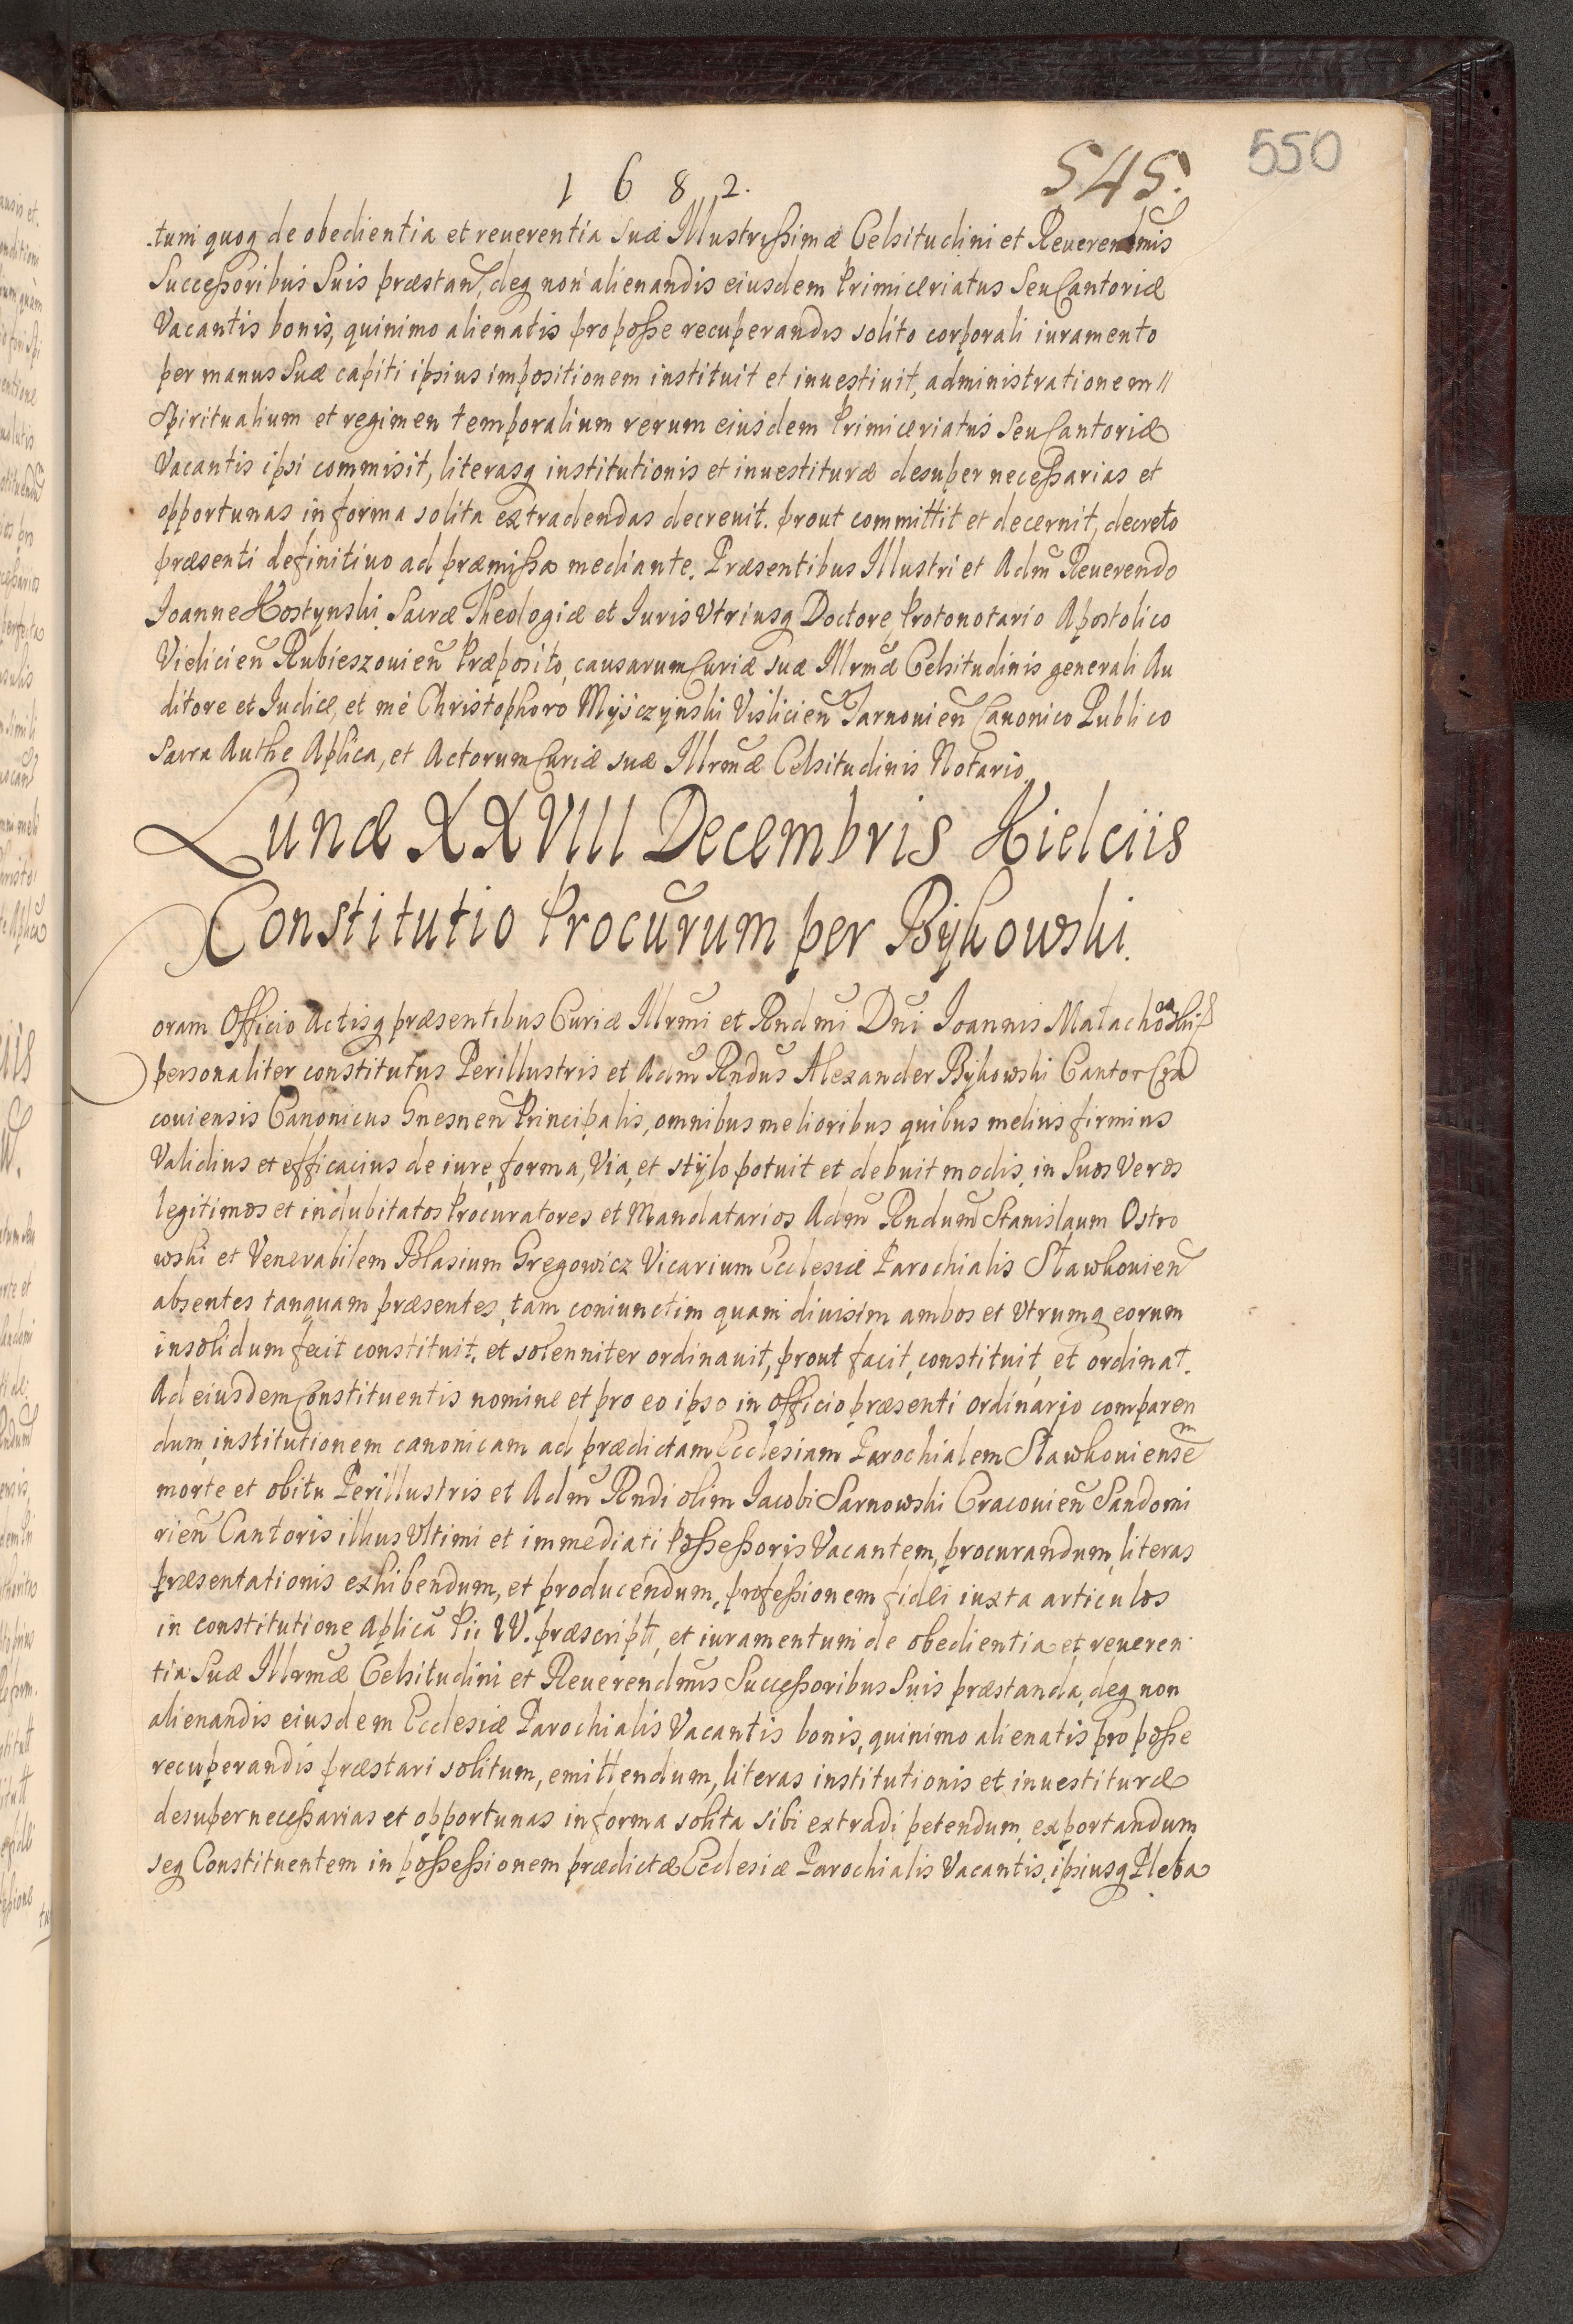 1 6 8 2.
545.
550
tum quoq de obedientia et reuerentia suæ Illustrissimæ Celsitudini et Reuerendmis
Successoribus Suis præstan, deq non alienandis eiusdem Primiceriatus Seu Cantoriæ
Vacantis bonis, quinimo alienatis pro posse recuperandis solito corporali iuramento
per manus Suæ capiti ipsius impositionem instituit et inuestiuit, administrationem
Spiritualium et regimen temporalium rerum eiusdem Primiceriatus Seu Cantoriæ
Vacantis ipsi commisit, literasq institutionis et inuestituræ desuper necessarias et
opportunas in forma solita extradendas decreuit. prout committit et decernit, decreto
præsenti definitiuo ad præmissa mediante. Præsentibus Illustri et Adm̃ Reuerendo
Ioanne Kostynski Sacræ Theologiæ et Iuris Vtriusq Doctore Protonotario Apostolico
Vielicień Rubieszouień Præposito, causarum Curiæ suæ Illrmæ Celsitudinis generali Au
ditore et Iudice, et me Christophoro Myśczynski Vislicień Tarnouień Canonico Publico
Sacra Authe Aplica, et Actorum Curiæ suæ Illrmæ Celsitudinis Notario.
Lunæ XXVIII Decembris Kielciis
Constitutio Procurum per Bykowski.
oram Officio Actisq præsentibus Curiæ Illrmi et Rndmi Dni Ioannis Małachowski
personaliter constitutus Perillustris et Adm̃ Rndus Alexander Bykowski Cantor Cra
couiensis Canonicus Gnesneñ Principalis, omnibus melioribus quibus melius firmius
Validius et efficacius de iure, forma, Via, et stylo potuit et debuit modis, in Suos Veros
legitimos et indubitatos Procuratores et Mandatarios Adm̃ Rndum Stanislaum Ostro
wski et Venerabilem Blasium Gregowicz Vicarium Ecclesiæ Parochialis Sławkouień
absentes tanquam præsentes, tam coniunctim quam diuisim ambos et Vtrumq eorum
insolidum fecit constituit, et solenniter ordinauit, prout facit, constituit, et ordinat.
Ad eiusdem Constituentis nomine et pro eo ipso in officio præsenti ordinario comparen
dum, institutionem canonicam ad prædictam Ecclesiam Parochialem Sławkouiensem
morte et obitu Perillustris et Adm̃ Rndi olim Iacobi Sarnowski Cracouień Sandomi
rień Cantoris illius Vltimi et immediati Possessoris Vacantem, procurandum, literas
præsentationis exhibendum, et producendum, professionem fidei iuxta articulos
in constitutione Aplica Pii IV. præscript, et iuramentum de obedientia et reueren
tia Suæ Illrmæ Celsitudini et Reuerendmis Successoribus Suis præstanda, deq non
alienandis eiusdem Ecclesiæ Parochialis Vacantis bonis, quinimo alienatis pro posse
recuperandis præstari solitum, emittendum, literas institutionis et inuestituræ
desuper necessarias et opportunas in forma solita sibi extradi petendum, exportandum
seq Constituentem in possessionem prædictæ Ecclesiæ Parochialis Vacantis, ipsiusq Pleba